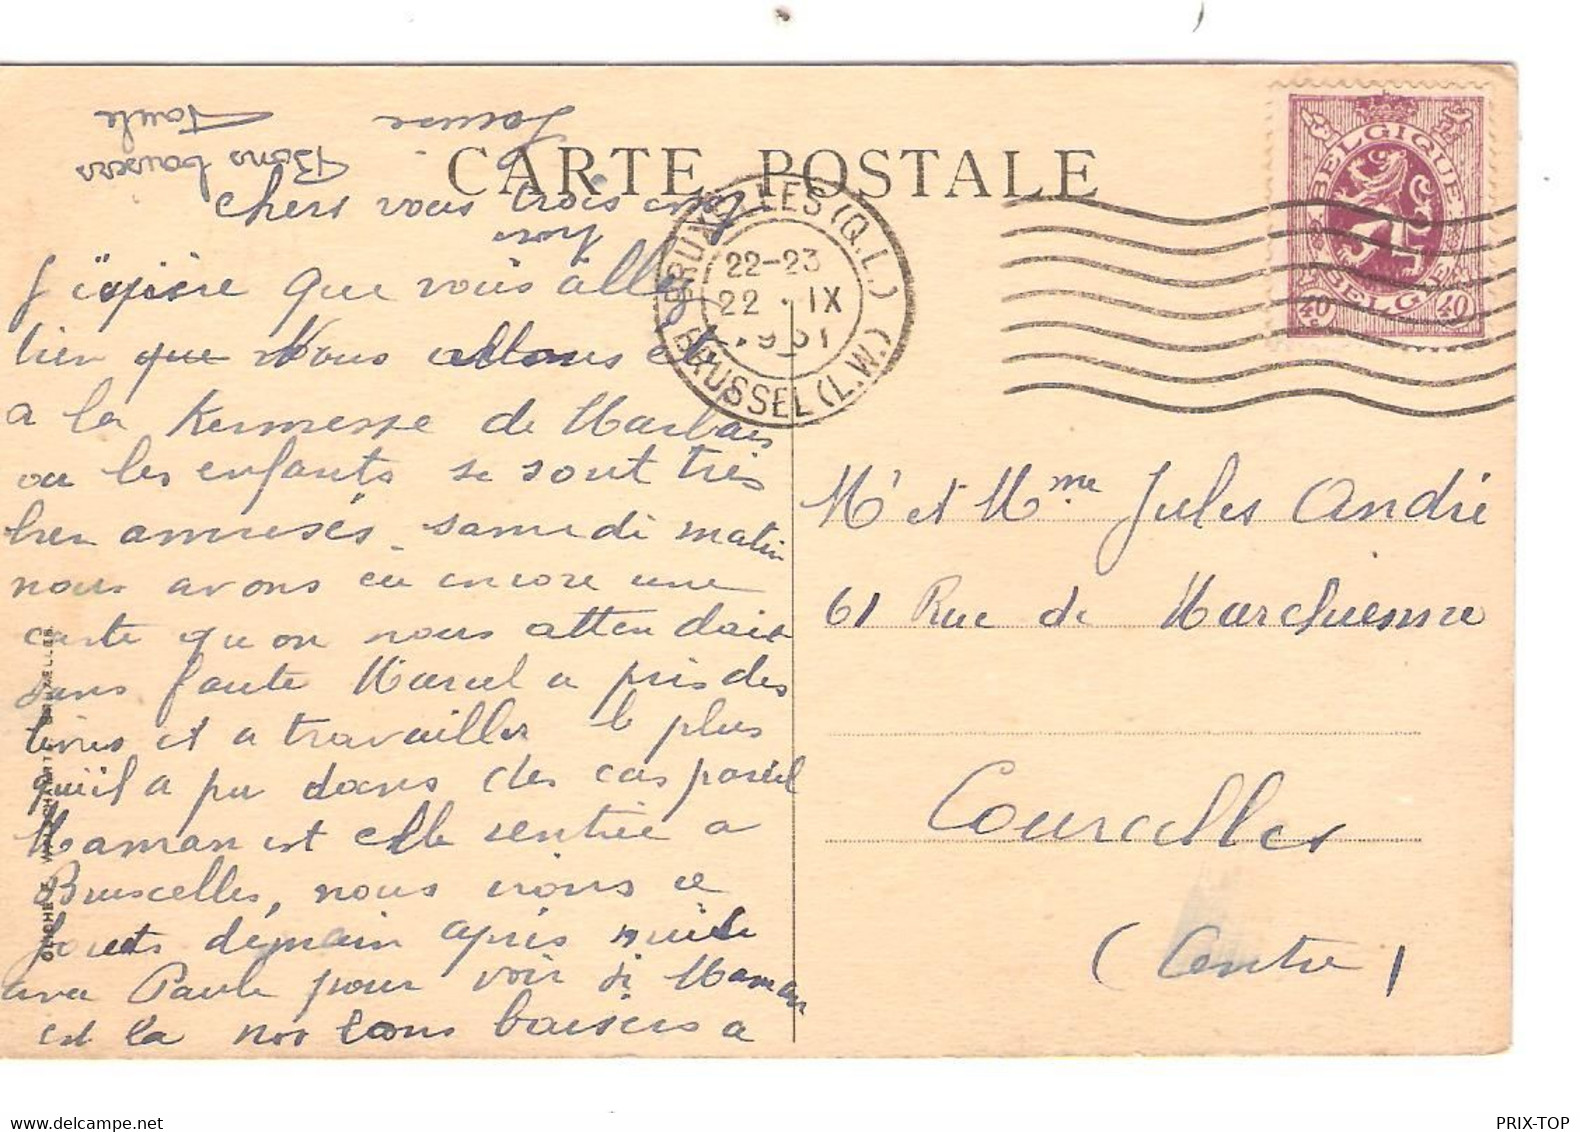 CARTE POSTALE
Chers vous trois cinq
trois
J'espère que vous allez
bien que Nous allons et
a la Kermesse de Marbais
ou les enfants se sont très
bien amusés. samedi matin
nous avons eu encore une
carte qu'on nous attendait
sans faute Marcel a pris des
livres et a travailler le plus
qu'il a pu dans des cas pareil
Maman est elle rentrée a
Bruxcelles, nous irons ce
demain après midi
avec Paule pour voir si Maman
est la nos bons baisers a
Bons baisers
Paule
Louise
BRUXELLES (Q.L.) (L.W.)
BRUSSEL
22-23
22 . IX
1931
BELGIQUE
BELGIE
40c 40
Mr et Mme Jules André
61 Rue de Marchienne
Courcelles
(Centre)
PRIX-TOP